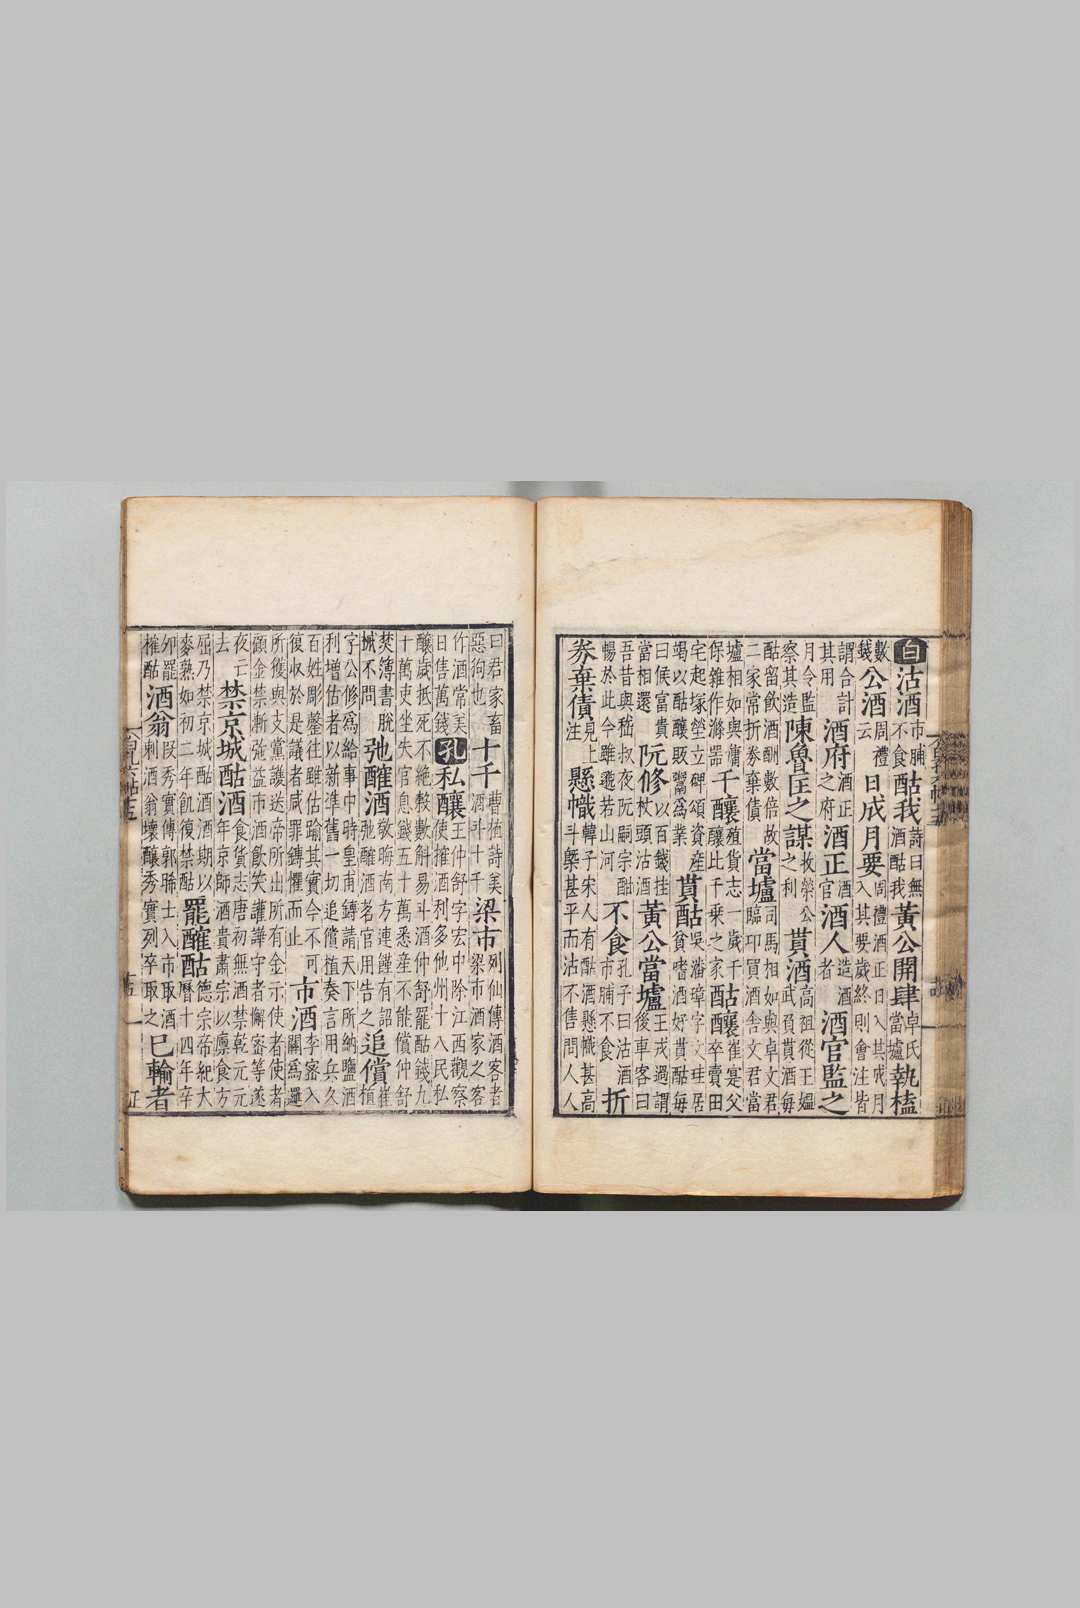 白沽酒市脯不食酤我詩曰無酒酤我黃公開肆卓氏當壚執榼
數錢公酒周禮云日成月要周禮酒正日入其成月入其要歲終則會注皆
謂合計其用酒府酒正之府酒正酒官酒人造酒者酒官監之
月令監察其造陳魯匡之謀榮公之利貰酒高祖從王媼武負貰酒每
酤留飲酒酬數倍故二家常折券棄債當壚司馬相如與卓文君臨卭買酒舍文君當
壚相如與傭保雜作滌器千釀殖貨志一歲千釀比千乘之家酤釀崔寔父卒賣田
宅起塚塋立碑頌資産竭以酤釀販鬻爲業貰酤吳潘璋字文珪居貧嗜酒好貰酤每
曰候富貴當相還阮修杖頭以百錢挂沽酒黃公當壚王戎過謂後車客曰
吾昔與嵇叔夜阮嗣宗酣暢於此今雖邇若山河不食孔子曰沽酒市脯不食折
券棄債見上注懸幟韓子宋人有酤酒懸幟甚高斗槩甚平而沽不售問人人
曰君家畜惡狗也十千曹植詩美酒斗十千梁市列仙傳酒客者梁市酒家之客
作酒常美日售萬錢孔私釀王仲舒字宏中除江西觀察使榷酒利多他州十八民私
釀歲抵死不絶穀數斛易斗酒仲舒罷酤錢九十萬吏坐失官息錢五十萬悉産不能償仲舒
焚簿書脫械不問弛醛酒敬晦南方連饉有詔弛醛酒茗官用告之追償崔植
字公修爲給事中時皇甫鎛請天下所納鹽酒利增估者以新準舊一切追償植奏言用兵久
百姓彫罄往雖估踰其實今不可復收於是議者咸罪鎛懼而止市酒李密入關爲邏
所獲與支黨護送帝所出所有金示使者使者顧金禁漸弛益市酒飲笑讙譁守者懈密等遂
夜亡去禁京城酤酒食貨志唐初無酒禁乾元元年京師酒貴肅宗以廩食方
屈乃禁京城酤酒期以麥熟如初二年飢復禁酤罷醛酤德宗帝紀大曆十四年辛
夘罷榷酤酒翁段秀實傳郭晞士入市取酒刺酒翁壞釀秀實列卒取之已輸者